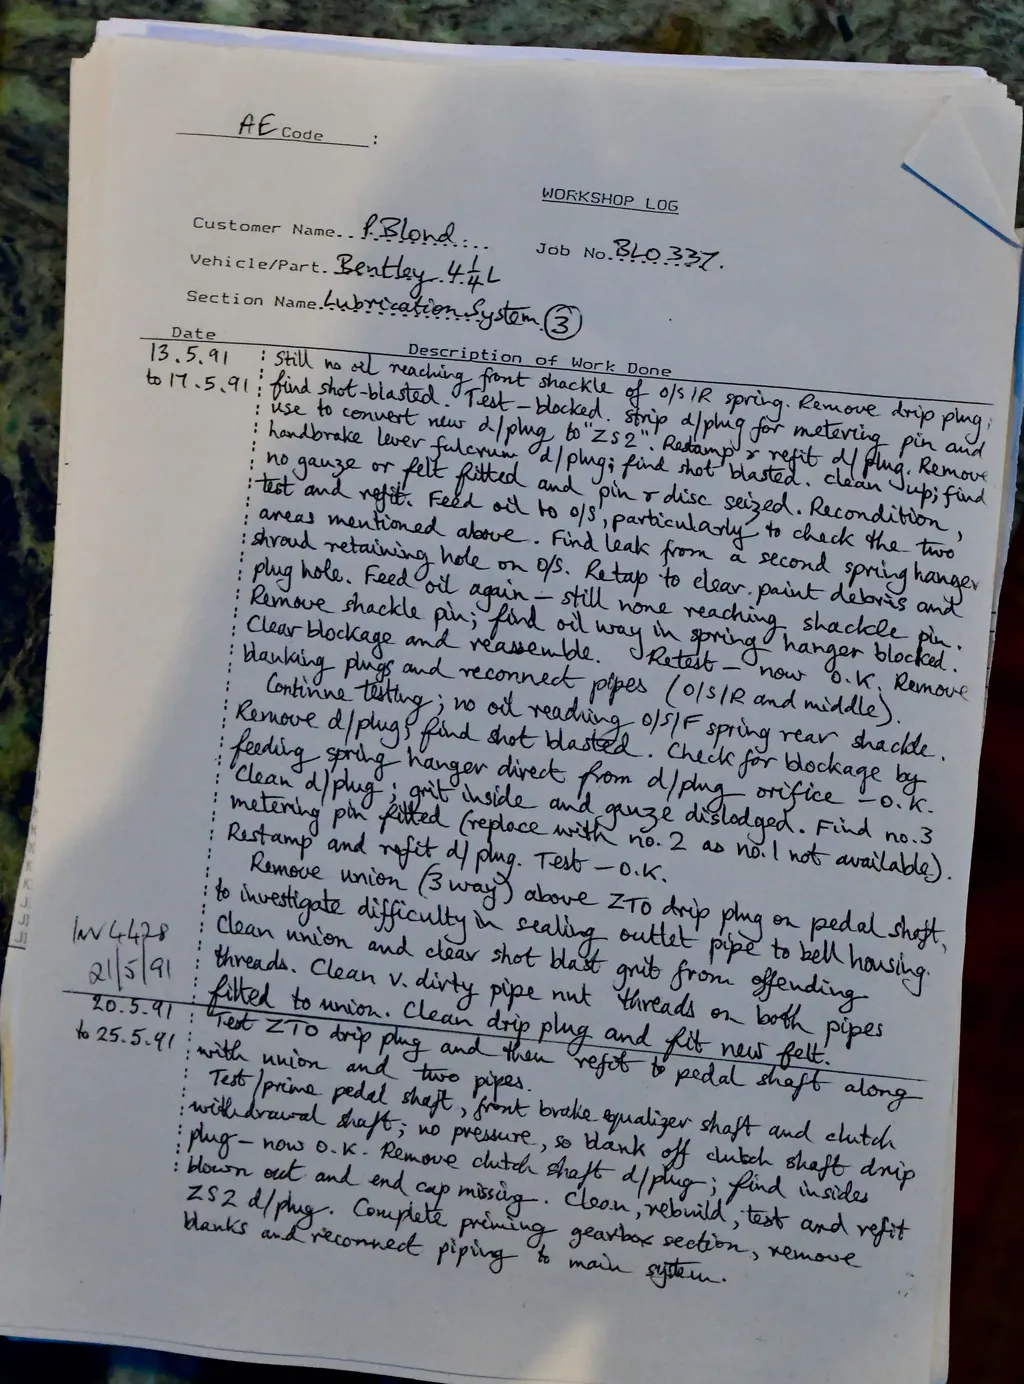 AE Code :
WORKSHOP LOG
Customer Name... P. Blond.... Job No. BLO 337.
Vehicle/Part. Bentley 4¼L
Section Name. Lubrication System ③
Date Description of Work Done
13.5.91 : Still no oil reaching front shackle of O/S/R spring. Remove drip plug;
to 17.5.91 : find shot-blasted. Test – blocked. Strip d/plug for metering pin and
use to convert new d/plug to "ZS2". Restamp & refit d/plug. Remove
handbrake lever fulcrum d/plug; find shot blasted. Clean up; find
no gauze or felt fitted and pin & disc seized. Recondition,
test and refit. Feed oil to O/S, particularly to check the two
areas mentioned above. Find leak from a second spring hanger
shroud retaining hole on O/S. Retap to clear paint debris and
plug hole. Feed oil again – still none reaching shackle pin.
Remove shackle pin; find oil way in spring hanger blocked.
Clear blockage and reassemble. Retest – now O.K. Remove
blanking plugs and reconnect pipes (O/S/R and middle).
Continue testing; no oil reaching O/S/F spring rear shackle.
Remove d/plug; find shot blasted. Check for blockage by
feeding spring hanger direct from d/plug orifice – O.K.
Clean d/plug; grit inside and gauze dislodged. Find no.3
metering pin fitted (replace with no. 2 as no. 1 not available).
Restamp and refit d/plug. Test – O.K.
Remove union (3 way) above ZTO drip plug on pedal shaft,
to investigate difficulty in sealing outlet pipe to bell housing.
INV 4428 Clean union and clear shot blast grit from offending
21/5/91 threads. Clean v. dirty pipe nut threads on both pipes
fitted to union. Clean drip plug and fit new felt.
20.5.91 Test ZTO drip plug and then refit to pedal shaft along
to 25.5.91 : with union and two pipes.
Test/prime pedal shaft, front brake equalizer shaft and clutch
withdrawal shaft; no pressure, so blank off clutch shaft drip
plug – now O.K. Remove clutch shaft d/plug; find insides
blown out and end cap missing. Clean, rebuild, test and refit
ZS2 d/plug. Complete priming gearbox section, remove
blanks and reconnect piping to main system.